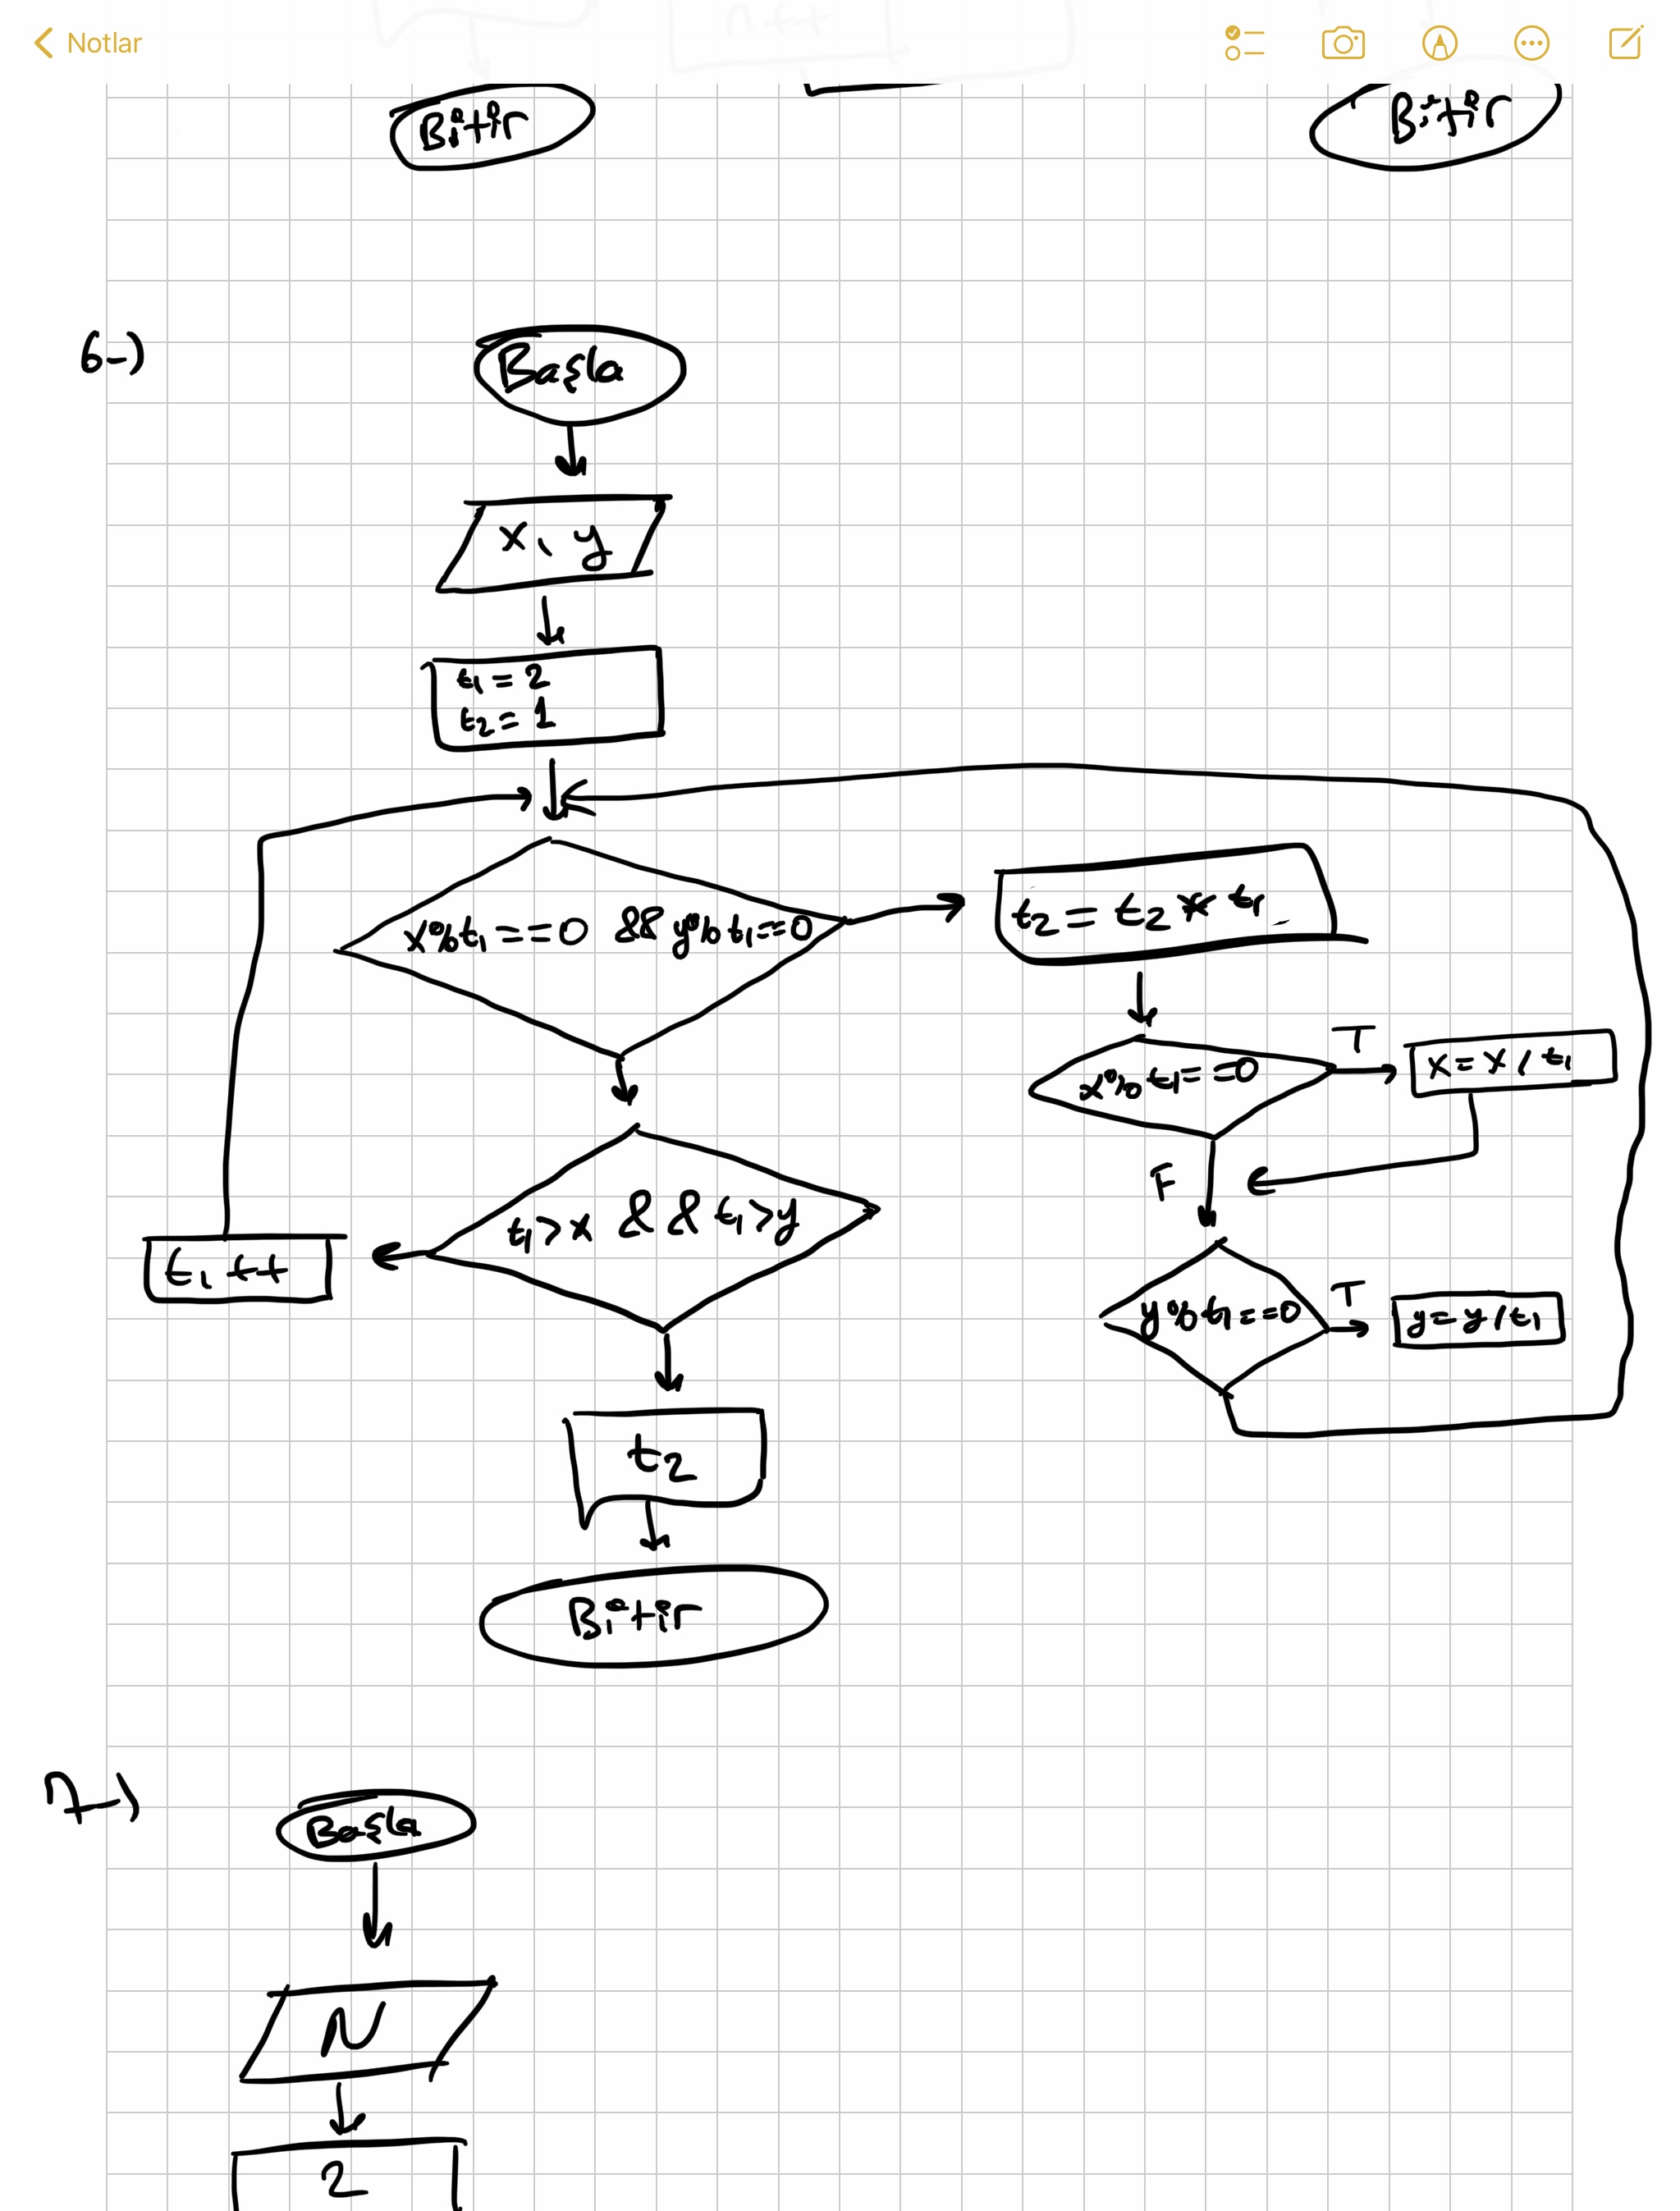 Notlar
n++
Bitir
Bitir
6-)
Başla
x, y
t1 = 2
t2 = 1
x%t1 == 0 && y%t1 == 0
t2 = t2 * t1
x%t1 == 0
T
x = x / t1
F
t1 > x && t1 > y
t1 ++
y%t1 == 0
T
y = y / t1
t2
Bitir
7-)
Başla
N
2